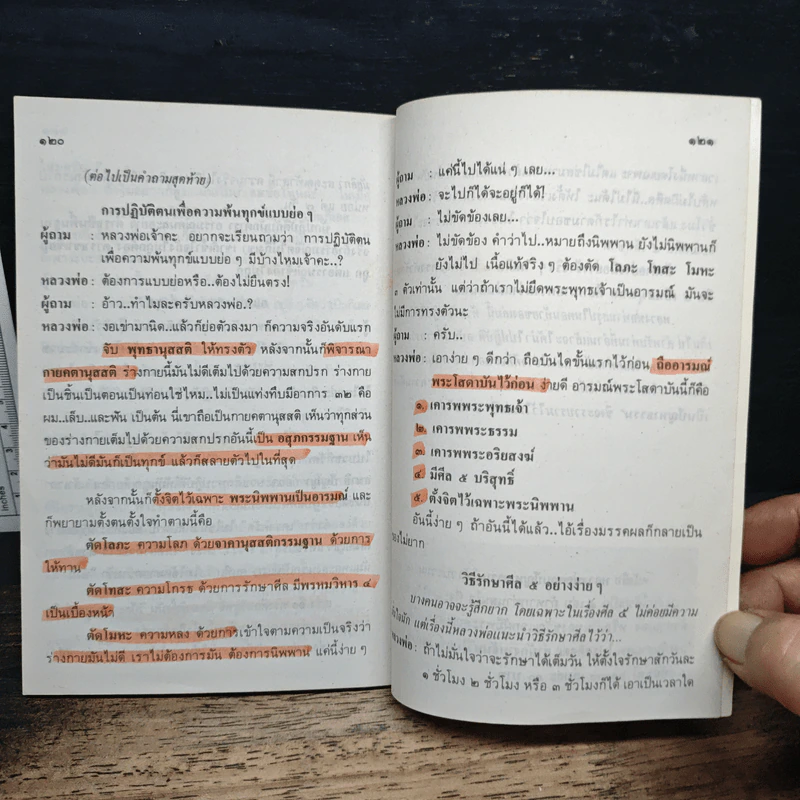 ๑๒๐
(ต่อไปเป็นคำถามสุดท้าย)
การปฏิบัติตนเพื่อความพ้นทุกข์แบบย่อ ๆ
ผู้ถาม : หลวงพ่อเจ้าคะ อยากจะเรียนถามว่า การปฏิบัติตน
เพื่อความพ้นทุกข์แบบย่อ ๆ มีบ้างไหมเจ้าคะ..?
หลวงพ่อ : ต้องการแบบย่อหรือ..ต้องไม่ยืนตรง!
ผู้ถาม : อ้าว..ทำไมละครับหลวงพ่อ.?
หลวงพ่อ : งอเข่ามานิด..แล้วก็ย่อตัวลงมา ก็ความจริงอันดับแรก
จับ พุทธานุสสติ ให้ทรงตัว หลังจากนั้นก็พิจารณา
กายคตานุสสติ ร่างกายนี้มันไม่ดีเต็มไปด้วยความสกปรก ร่างกาย
เป็นชิ้นเป็นตอนเป็นท่อนใช่ไหม..ไม่เป็นแท่งทึบมีอาการ ๓๒ คือ
ผม..เล็บ..และฟัน เป็นต้น นี่เขาถือเป็นกายคตานุสสติ เห็นว่าทุกส่วน
ของร่างกายเต็มไปด้วยความสกปรกอันนี้เป็น อสุภกรรมฐาน เห็น
ว่ามันไม่ดีมันก็เป็นทุกข์ แล้วก็สลายตัวไปในที่สุด
หลังจากนั้นก็ตั้งจิตไว้เฉพาะ พระนิพพานเป็นอารมณ์ และ
ก็พยายามตั้งตนตั้งใจทำตามนี้คือ
ตัดโลภะ ความโลภ ด้วยจาคานุสสติกรรมฐาน ด้วยการ
ให้ทาน
ตัดโทสะ ความโกรธ ด้วยการรักษาศีล มีพรหมวิหาร ๔
เป็นเบื้องหน้า
ตัดโมหะ ความหลง ด้วยการเข้าใจตามความเป็นจริงว่า
ร่างกายมันไม่ดี เราไม่ต้องการมัน ต้องการนิพพาน แค่นี้ง่าย ๆ
๑๒๑
ผู้ถาม : แค่นี้ไปได้แน่ ๆ เลย...
หลวงพ่อ : จะไปก็ได้จะอยู่ก็ได้!
ผู้ถาม : ไม่ขัดข้องเลย...
หลวงพ่อ : ไม่ขัดข้อง คำว่าไป..หมายถึงนิพพาน ยังไม่นิพพานก็
ยังไม่ไป เนื้อแท้จริง ๆ ต้องตัด โลภะ โทสะ โมหะ
๓ ตัวเท่านั้น แต่ว่าถ้าเราไม่ยึดพระพุทธเจ้าเป็นอารมณ์ มันจะ
ไม่มีการทรงตัวนะ
ผู้ถาม : ครับ..
หลวงพ่อ : เอาง่าย ๆ ดีกว่า ถือบันไดขั้นแรกไว้ก่อน ถืออารมณ์
พระโสดาบันไว้ก่อน ง่ายดี อารมณ์พระโสดาบันนี้ก็คือ
๑. เคารพพระพุทธเจ้า
๒. เคารพพระธรรม
๓. เคารพพระอริยสงฆ์
๔. มีศีล ๕ บริสุทธิ์
๕. ตั้งจิตไว้เฉพาะพระนิพพาน
อันนี้ง่าย ๆ ถ้าอันนี้ได้แล้ว..ไอ้เรื่องมรรคผลก็กลายเป็น
ของไม่ยาก
วิธีรักษาศีล ๕ อย่างง่าย ๆ
บางคนอาจจะรู้สึกยาก โดยเฉพาะในเรื่องศีล ๕ ไม่ค่อยมีความ
มั่นใจนัก แต่เรื่องนี้หลวงพ่อแนะนำวิธีรักษาศีลไว้ว่า...
หลวงพ่อ : ถ้าไม่มั่นใจว่าจะรักษาได้เต็มวัน ให้ตั้งใจรักษาสักวันละ
๑ ชั่วโมง ๒ ชั่วโมง หรือ ๓ ชั่วโมงก็ได้ เอาเป็นเวลาใด